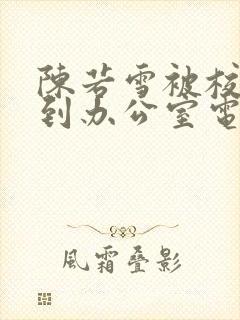 陳若雪被校
到办公室電
風霜叠影